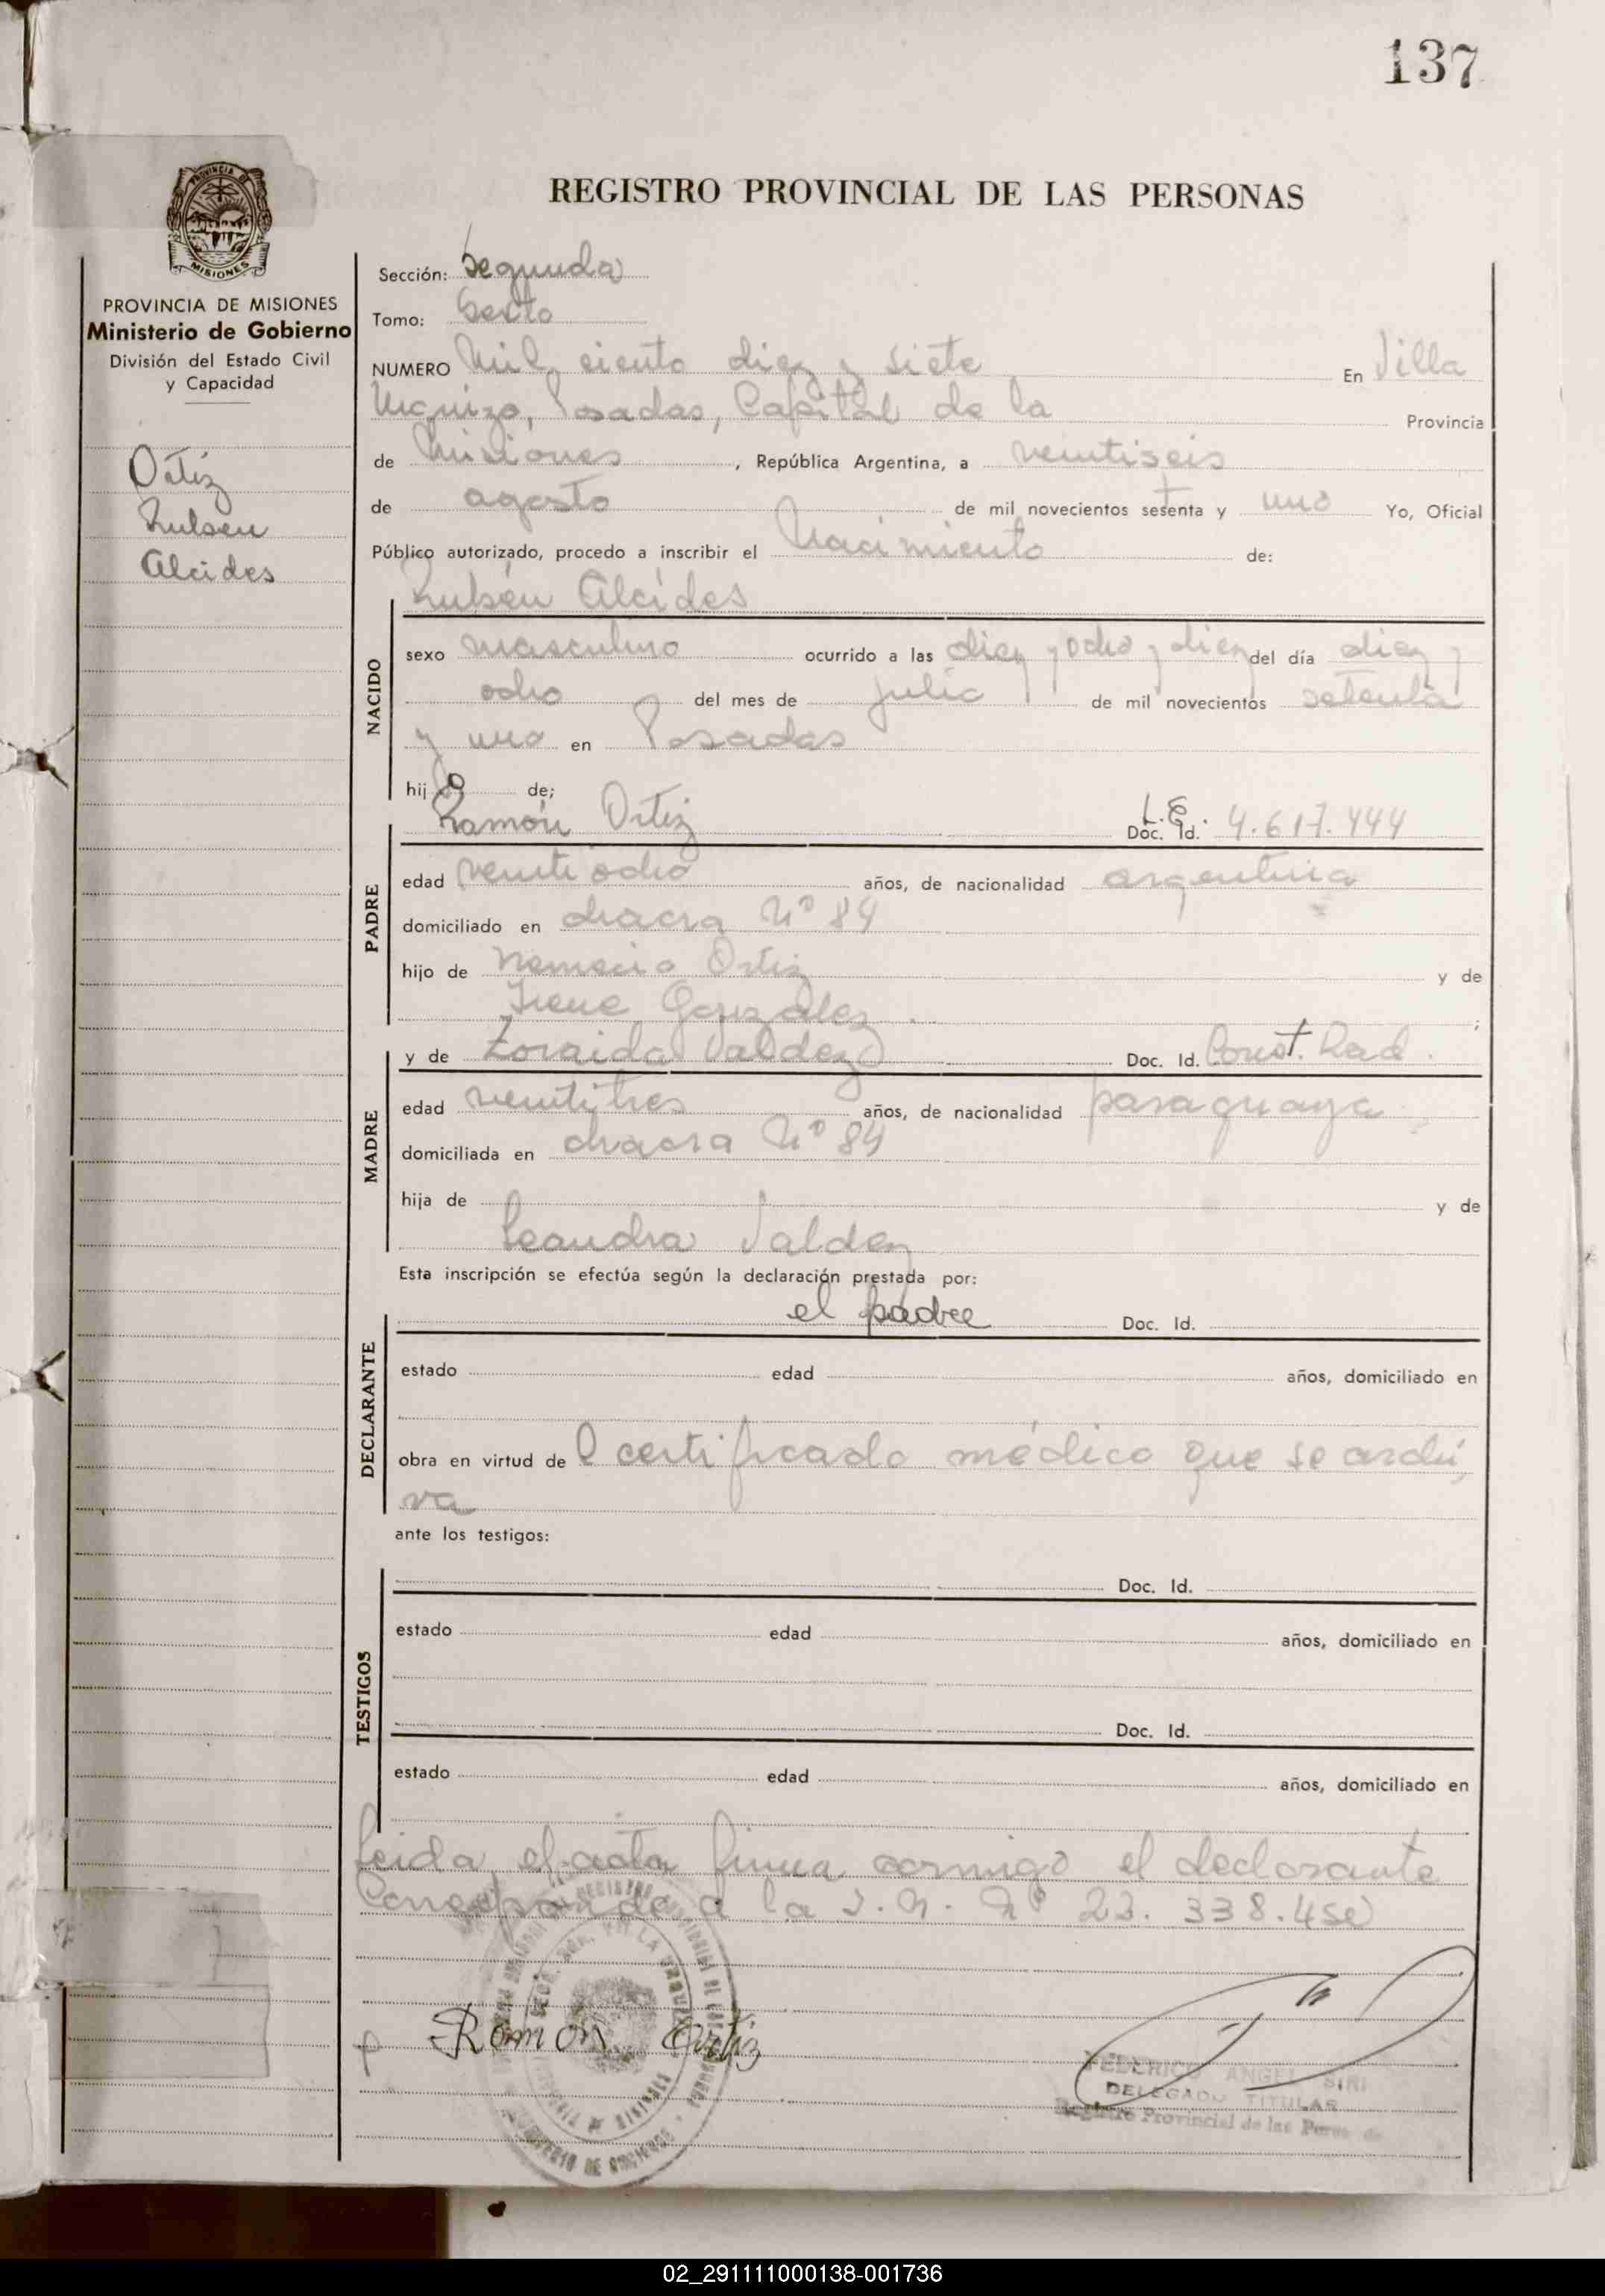 137
PROVINCIA DE
MISIONES
PROVINCIA DE MISIONES
Ministerio de Gobierno
División del Estado Civil
y Capacidad
Ortíz
Ruben
Alcides
REGISTRO PROVINCIAL DE LAS PERSONAS
Sección: Segunda
Tomo: Sexto
NUMERO Mil ciento diez y siete En Villa
Urquiza, Posadas, Capital de la Provincia
de Misiones, República Argentina, a veintiseis
de agosto de mil novecientos setenta y uno Yo, Oficial
Público autorizado, procedo a inscribir el Nacimiento de:
Rubén Alcides
NACIDO
sexo masculino ocurrido a las diez y ocho y diez del día diez y
ocho del mes de julio de mil novecientos setenta
y uno en Posadas
hijo de;
Ramón Ortiz L.E. Doc. Id. 4.617.444
PADRE
edad veintiocho años, de nacionalidad argentina
domiciliado en chacra Nº 84
hijo de Nemecio Ortiz y de
Irene González ;
MADRE
y de Zoraida Valdez Doc. Id. Const. Rad.
edad veintitres años, de nacionalidad paraguaya
domiciliada en chacra Nº 84
hija de y de
Leandra Valdez
Esta inscripción se efectúa según la declaración prestada por:
DECLARANTE
el padre Doc. Id.
estado edad años, domiciliado en
obra en virtud de l certificado médico que se archi
va
ante los testigos:
TESTIGOS
Doc. Id.
estado edad años, domiciliado en
Doc. Id.
estado edad años, domiciliado en
Leida el acta firma conmigo el declarante
Corresponde a la 22.338.450
Ramon Ortiz
FEDERICO ANGEL SIRI
DELEGADO TITULAR
Registro Provincial de las Personas
02_291111000138-001736